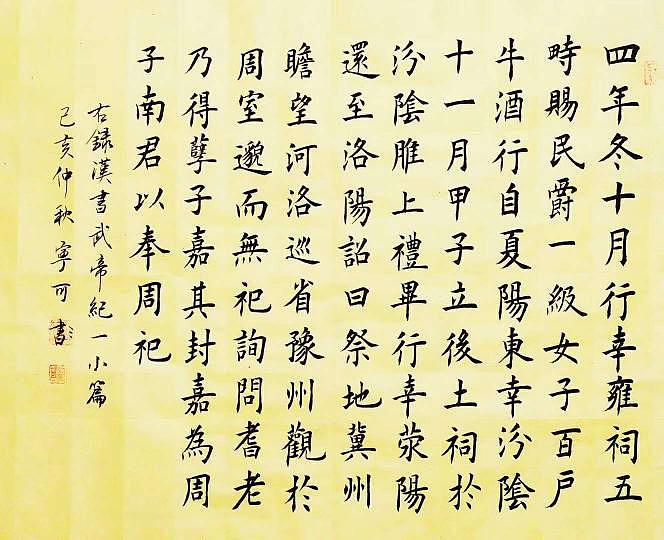 四年冬十月行幸雍祠五
畤賜民爵一級女子百戶
牛酒行自夏陽東幸汾陰
十一月甲子立後土祠於
汾陰脽上禮畢行幸滎陽
還至洛陽詔曰祭地冀州
瞻望河洛巡省豫州觀於
周室邈而無祀詢問耆老
乃得孽子嘉其封嘉為周
子南君以奉周祀
右録漢書武帝紀一小篇
己亥仲秋寧可書